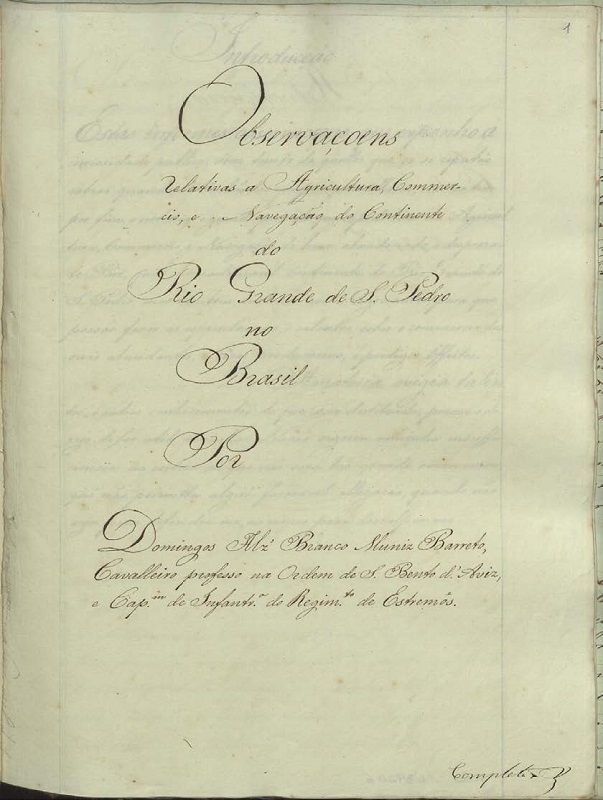 1
Observaçoens
relativas a Agricultura, Commer-
cio, e Navegação do Continente
do
Rio Grande de S. Pedro
no
Brasil
Por
Domingos Alz' Branco Muniz Barreto,
Cavalleiro professo na Ordem de S. Bento d'Aviz,
e Cap.^m de Infantr.^a do Regim.^to de Estremôs.
Completo